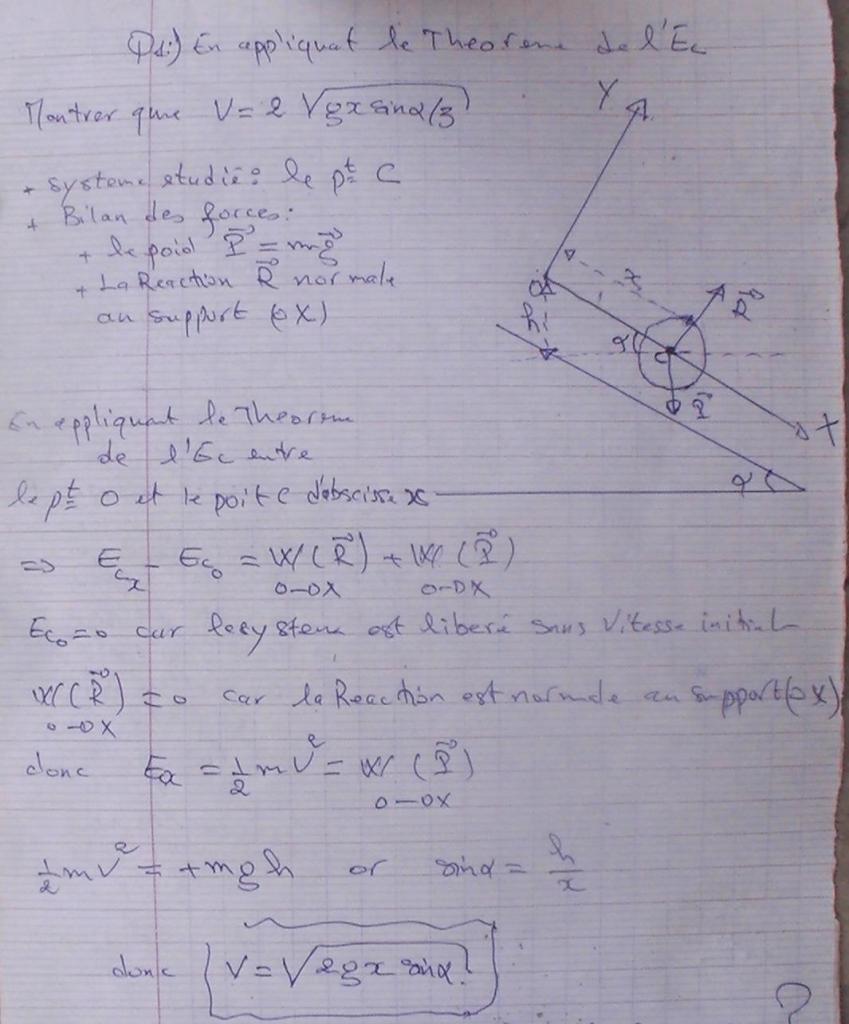 Q1:) En appliquat le Theoreme de l'Ec
Montrer que V = 2 √(gx sinα/3)
+ systeme etudié : le pt C
+ Bilan des forces :
+ le poid P⃗ = mg⃗
+ La Reaction R⃗ normale
au support (OX)
Y
O
x
h
α
C
R⃗
P⃗
X
α
En appliquant le Theoreme
de l'Ec entre
le pt O et le poit C d'abscisse x
=> Ecx - Ec0 = W(R⃗) + W(P⃗)
O→X O→X
Ec0 = 0 car le systeme est liberé sans vitesse initial
W(R⃗) = 0 car la Reaction est normale au support (OX)
O→X
donc Ecx = 1/2 mV² = W(P⃗)
O→X
1/2 mV² = + mgh or sinα = h/x
donc V = √(2gx sinα) !
?